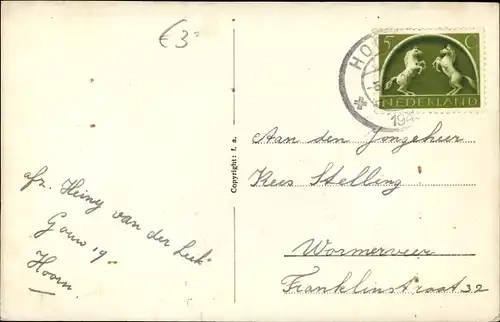 €3
HO
5 C
NEDERLAND
194
Copyright: f. a.
Aan den Jongeheer
Kees Stelling
Wormerveer
Franklinstraat 32
afz. Heiny van der Leek
Gouw 19
Hoorn.